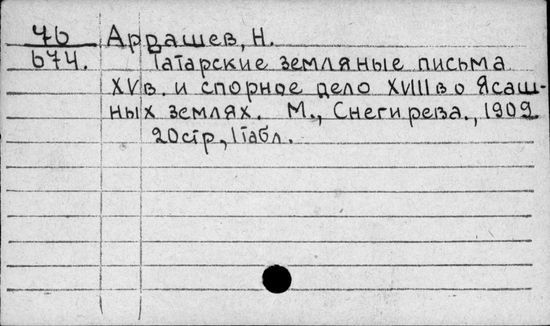 76 Аррашев, Н.
674. Татарские земляные письма
XVв. и спорное дело XVIIIв о Ясаш-
ных землях. М., Снегирева., 1909
20стр, 1табл.